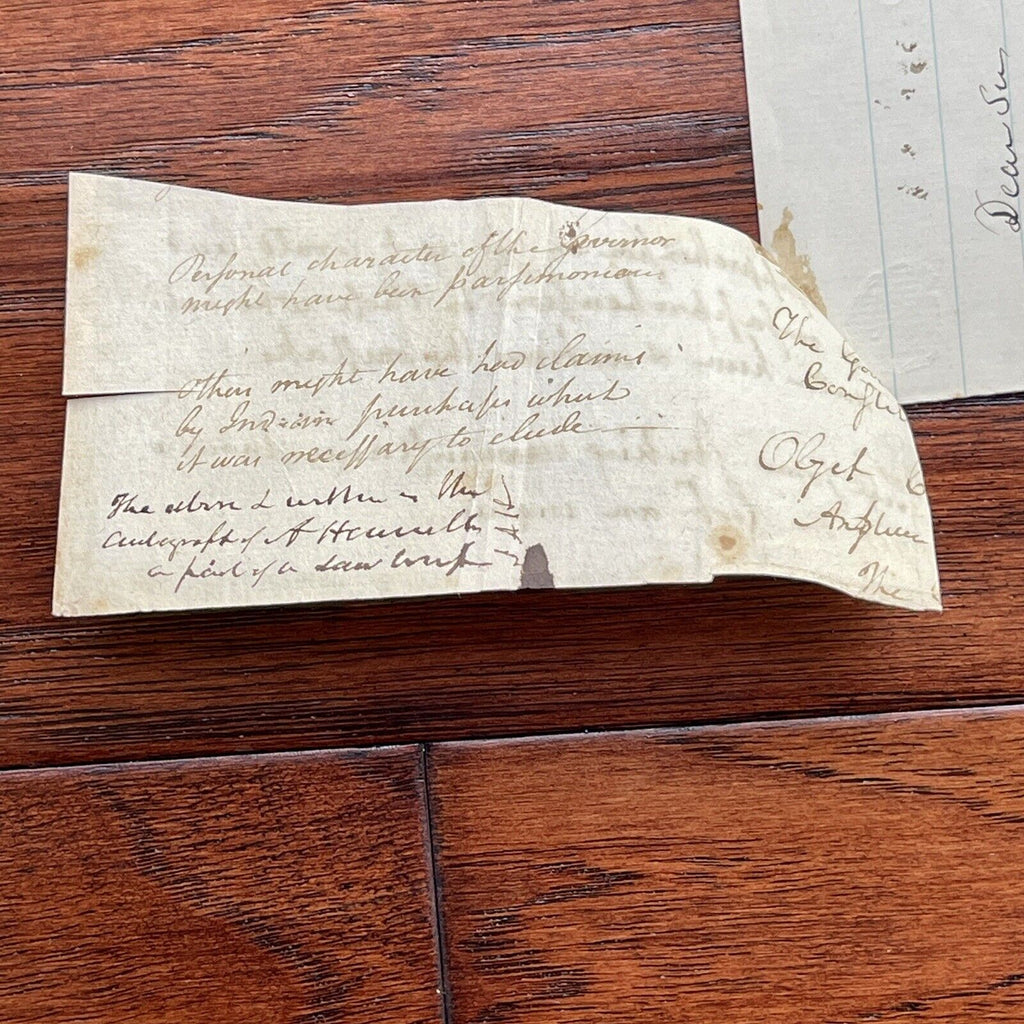 Personal character of the Governor
might have been parsimonious
Others might have had claims
by Indian purchases which
it was necessary to elude
The above & written is the
autograph of A Hamilton
a part of a Law brief
JAH
The
Object
Answer
The
Dear Sir